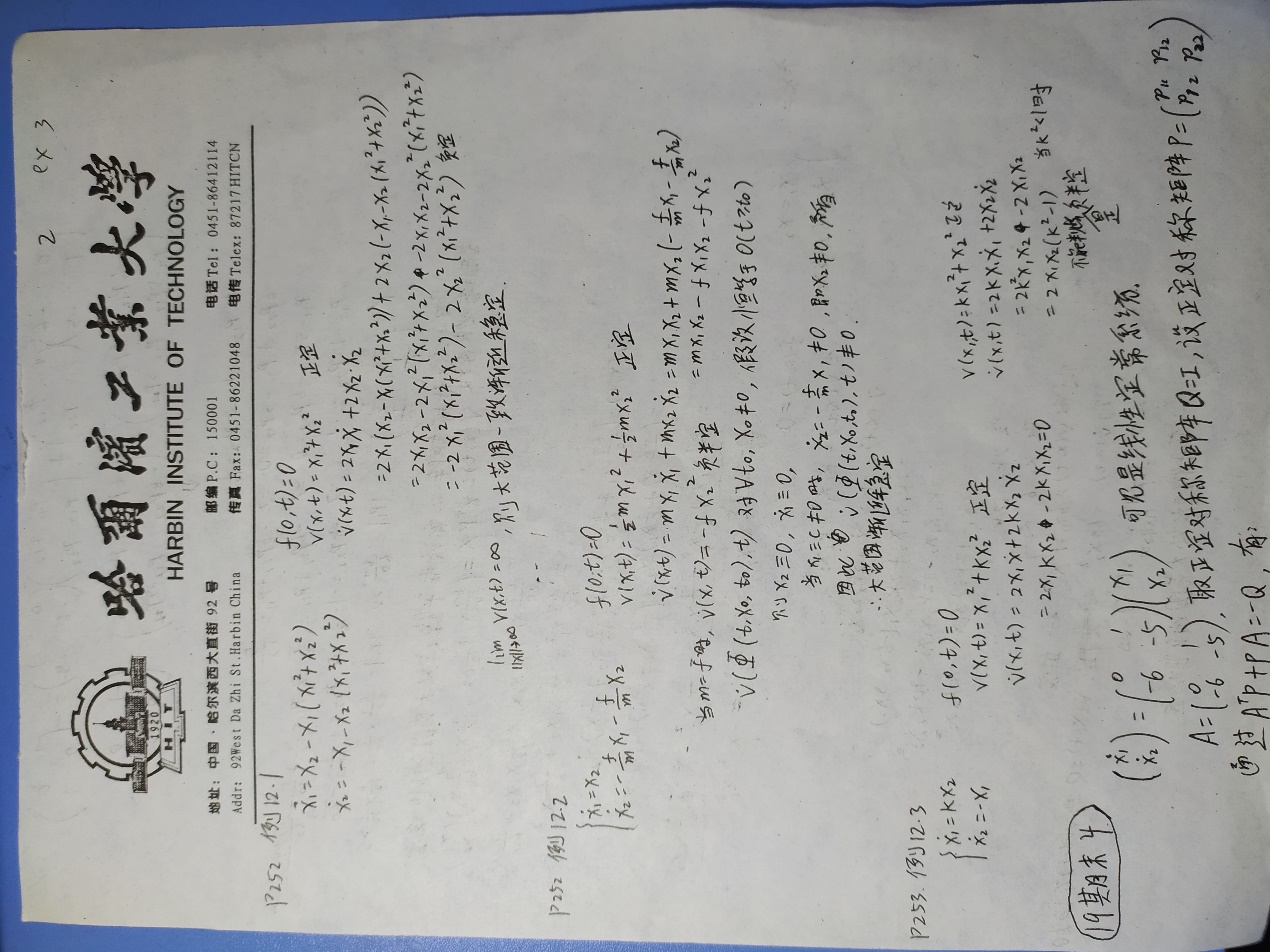 2 ex 3
哈爾濱工業大學
HARBIN INSTITUTE OF TECHNOLOGY
1920
HIT
地址: 中国·哈尔滨西大直街 92 号 邮编 P.C: 150001 电话 Tel: 0451-86412114
Addr: 92West Da Zhi St.Harbin China 传真 Fax: 0451-86221048 电传 Telex: 87217 HITCN
P252 例12.1
ẋ₁=x₂-x₁(x₁²+x₂²)
ẋ₂=-x₁-x₂(x₁²+x₂²)
f(0,t)=0
v(x,t)=x₁²+x₂² 正定
v̇(x,t)=2x₁ẋ₁+2x₂·ẋ₂
=2x₁(x₂-x₁(x₁²+x₂²))+2x₂(-x₁-x₂(x₁²+x₂²))
=2x₁x₂-2x₁²(x₁²+x₂²)-2x₁x₂-2x₂²(x₁²+x₂²)
=-2x₁²(x₁²+x₂²)-2x₂²(x₁²+x₂²) 负定
lim v(x,t)=∞, 则大范围一致渐近稳定.
||x||→∞
P252 例12.2
ẋ₁=x₂
ẋ₂=-f/m x₁-f/m x₂
f(0,t)=0
v(x,t)=½mx₁²+½mx₂² 正定
v̇(x,t)=mx₁ẋ₁+mx₂ẋ₂=mx₁x₂+mx₂(-f/m x₁-f/m x₂)
=mx₁x₂-fx₁x₂-fx₂²
当m=f时, v̇(x,t)=-fx₂² 负半定
v̇(Φ(t,x₀,t₀),t) 对∀t₀, x₀≠0, 假设恒等于0(t≥t₀)
则x₂≡0, ẋ₁≡0,
当x₁≡c≠0时, ẋ₂=-f/m x₁≠0, 即x₂≢0, 矛盾
因此 v̇(Φ(t,x₀,t₀),t)≢0.
∴大范围渐近稳定
P253. 例12.3
ẋ₁=kx₂
ẋ₂=-x₁
f(0,t)=0
v(x,t)=x₁²+kx₂² 正定
v̇(x,t)=2x₁ẋ+2kx₂ẋ₂
=2x₁kx₂-2kx₁x₂=0
v(x,t)=kx₁²+x₂² 正定
v̇(x,t)=2kx₁ẋ₁+2x₂ẋ₂
=2k²x₁x₂-2x₁x₂
=2x₁x₂(k²-1) 当k²<1时
不能判断是负半定
19期末4
(ẋ₁ ẋ₂)=(0 1 -6 -5)(x₁ x₂) 可见是线性定常系统.
A=(0 1 -6 -5), 取正定对称矩阵Q=I, 设正定对称矩阵P=(P₁₁ P₁₂ P₁₂ P₂₂)
通过AᵀP+PA=-Q, 有: